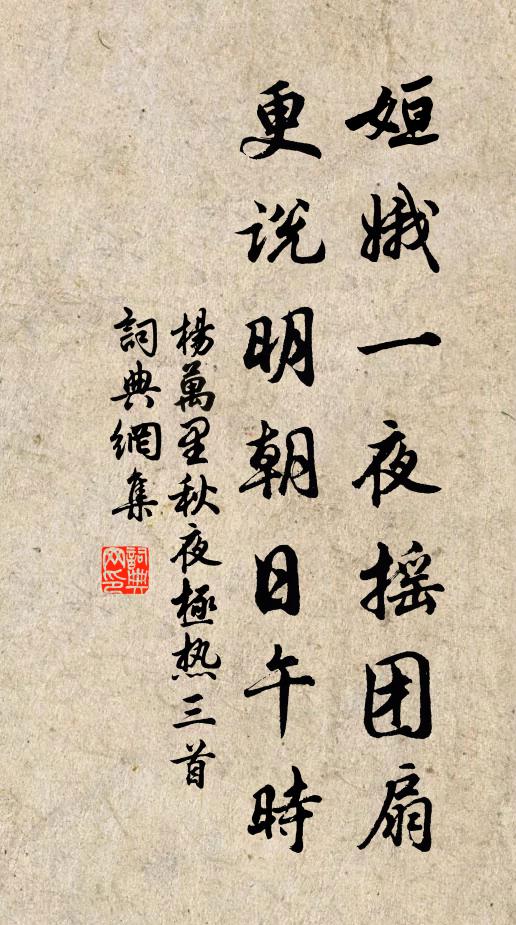 姮娥一夜摇团扇
更说明朝日午時
楊萬里秋夜極热三首
詞典網集
詞典网印